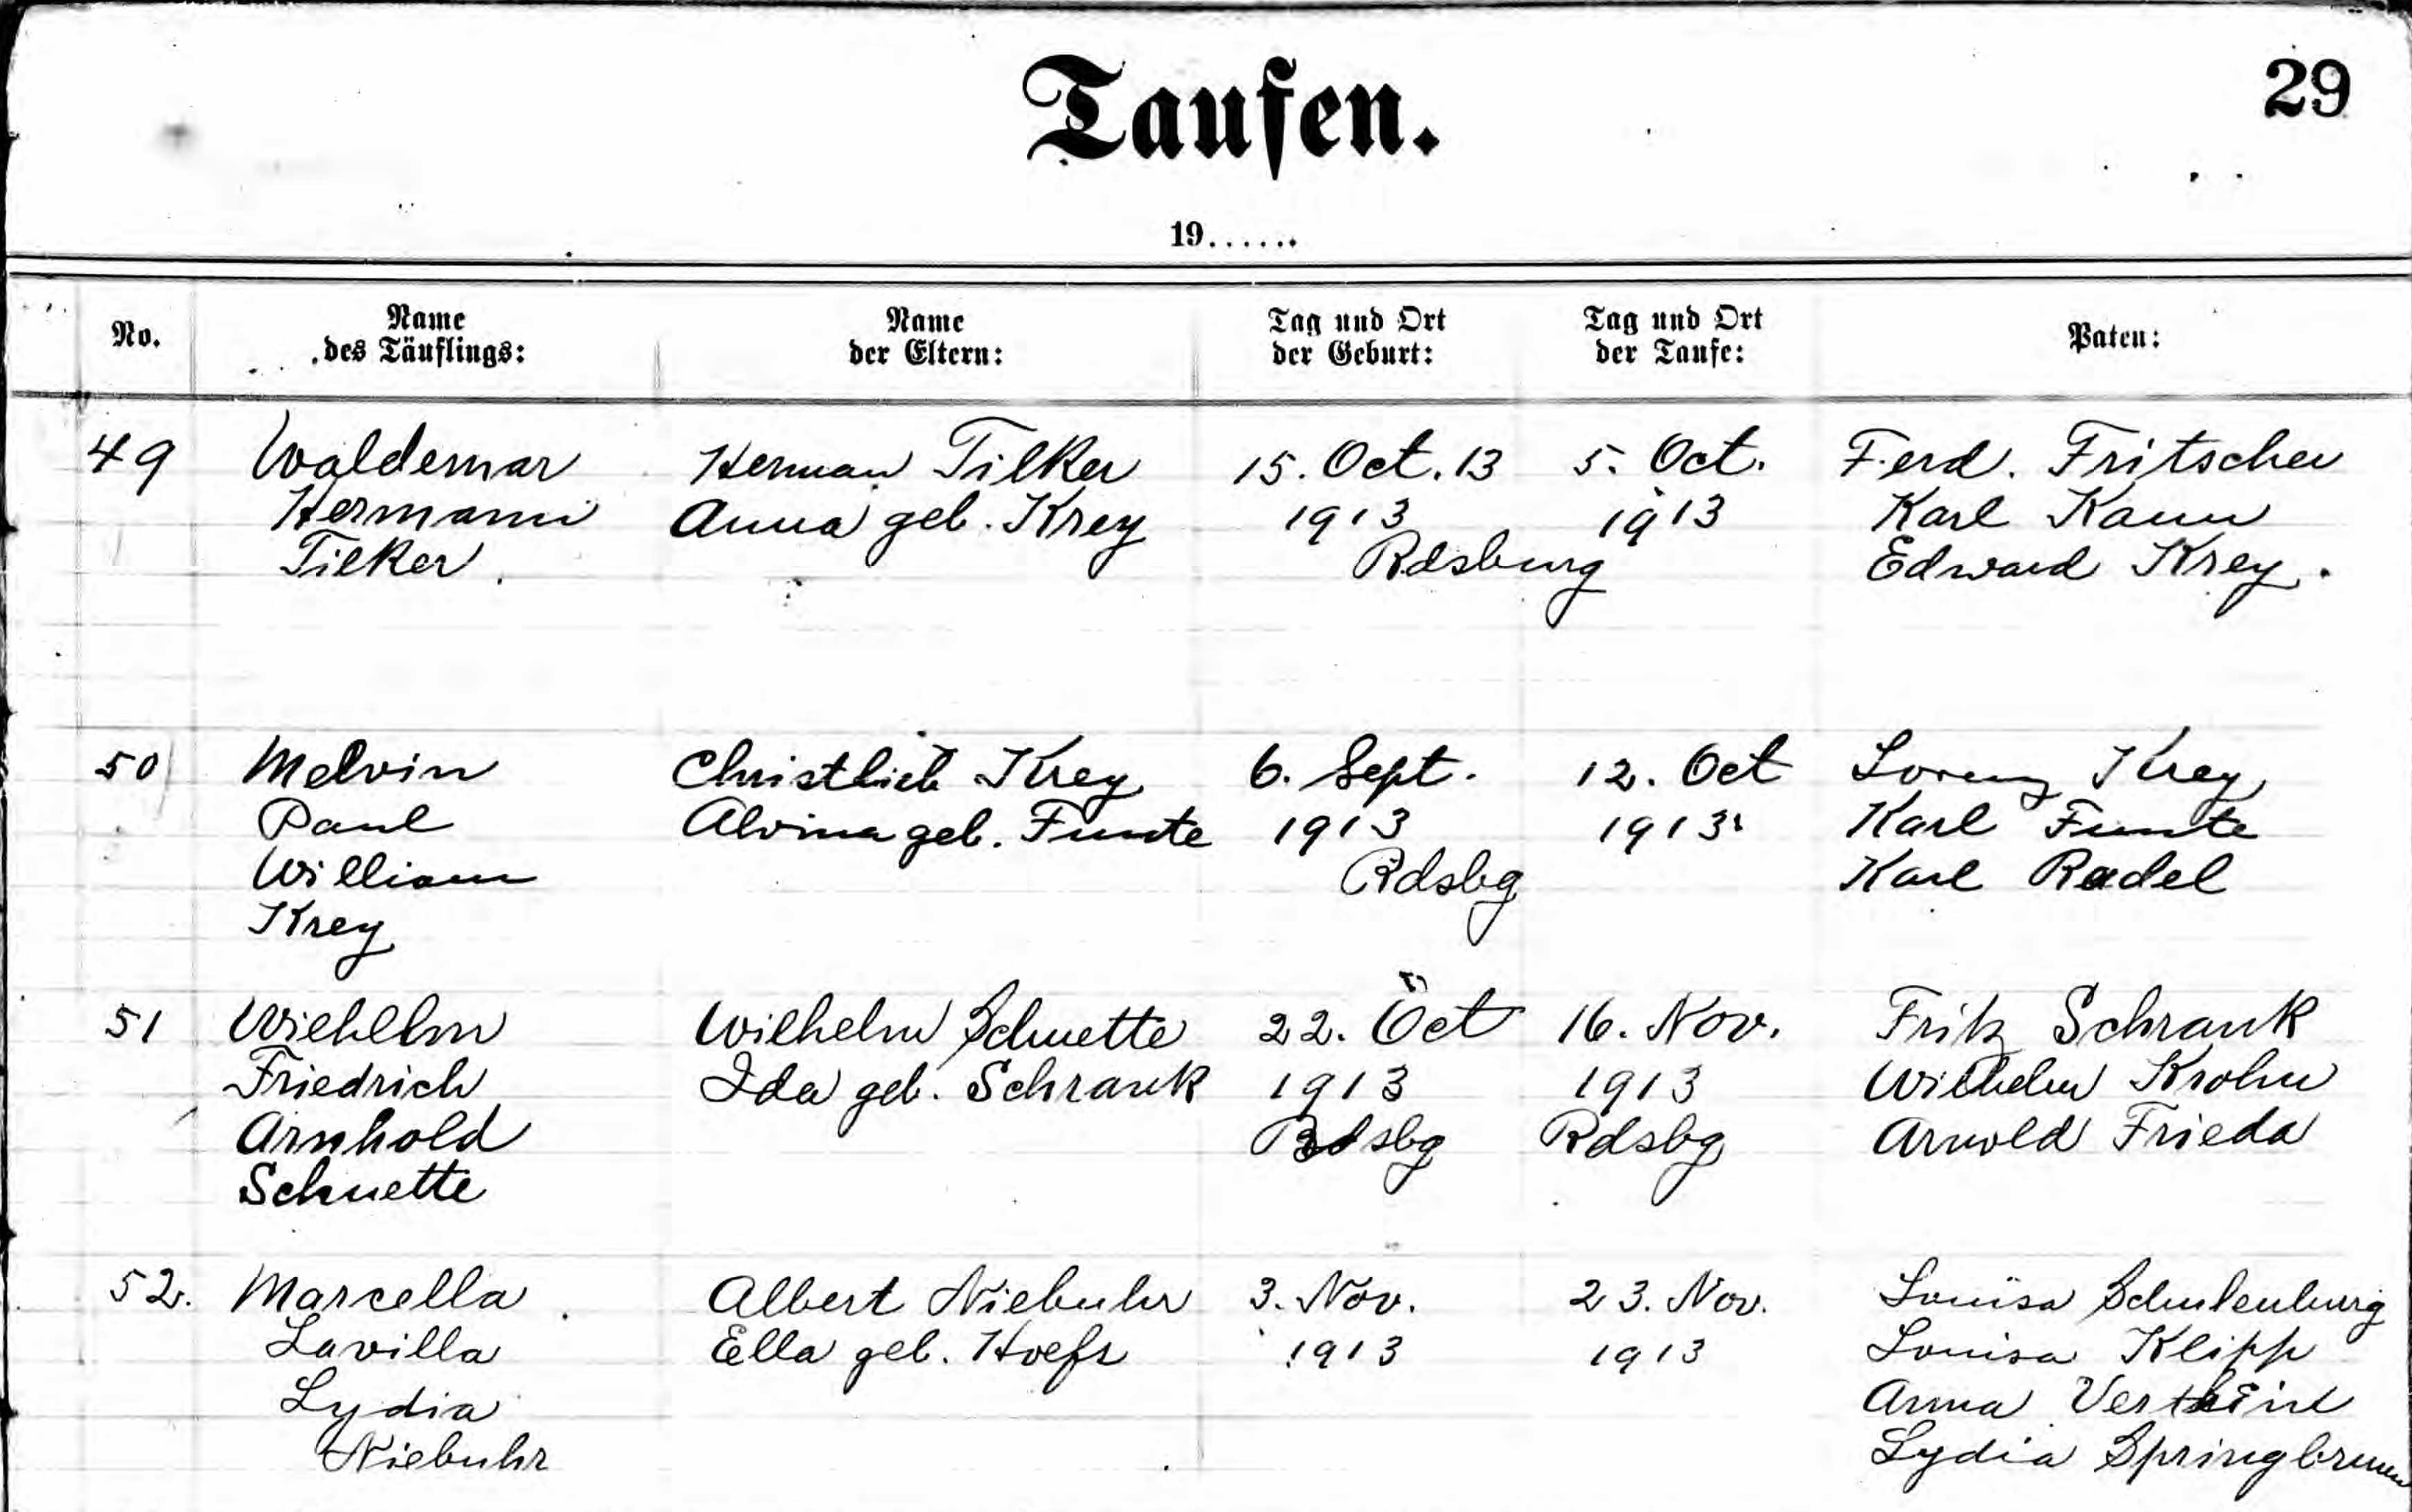 29
Taufen.
19......
No. Name des Täuflings: Name der Eltern: Tag und Ort der Geburt: Tag und Ort der Taufe: Paten:
49 Waldemar Herman Tilker 15. Oct. 13 5. Oct. Ferd. Fritscher
Hermann Anna geb. Krey 1913 1913 Karl Kaun
Tilker. Rdsburg Edward Krey.
50 Melvin Christlieb Krey 6. Sept. 12. Oct Lorenz Krey
Paul Alvina geb. Funte 1913 1913. Karl Funte
William Rdsbg Karl Radel
Krey
51 Wiehelm Wilhelm Schuette 22. Oct 16. Nov. Fritz Schrank
Friedrich Ida geb. Schrank 1913 1913 Wilhelm Krohn
Arnhold Rdsbg Rdsbg Arnold Frieda
Schuette
52. Marcella Albert Niebuhr 3. Nov. 23. Nov. Louisa Schulenburg
Lavilla Ella geb. Hoefs 1913 1913 Louisa Klipp
Lydia Anna
Niebuhr Lydia Springbrunn